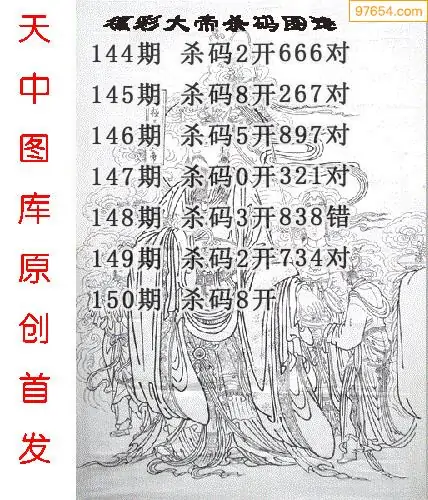 97654.com
福彩大帝杀码图迷
144期 杀码2开666对
145期 杀码8开267对
146期 杀码5开897对
147期 杀码0开321对
148期 杀码3开838错
149期 杀码2开734对
150期 杀码8开
天中图库原创首发